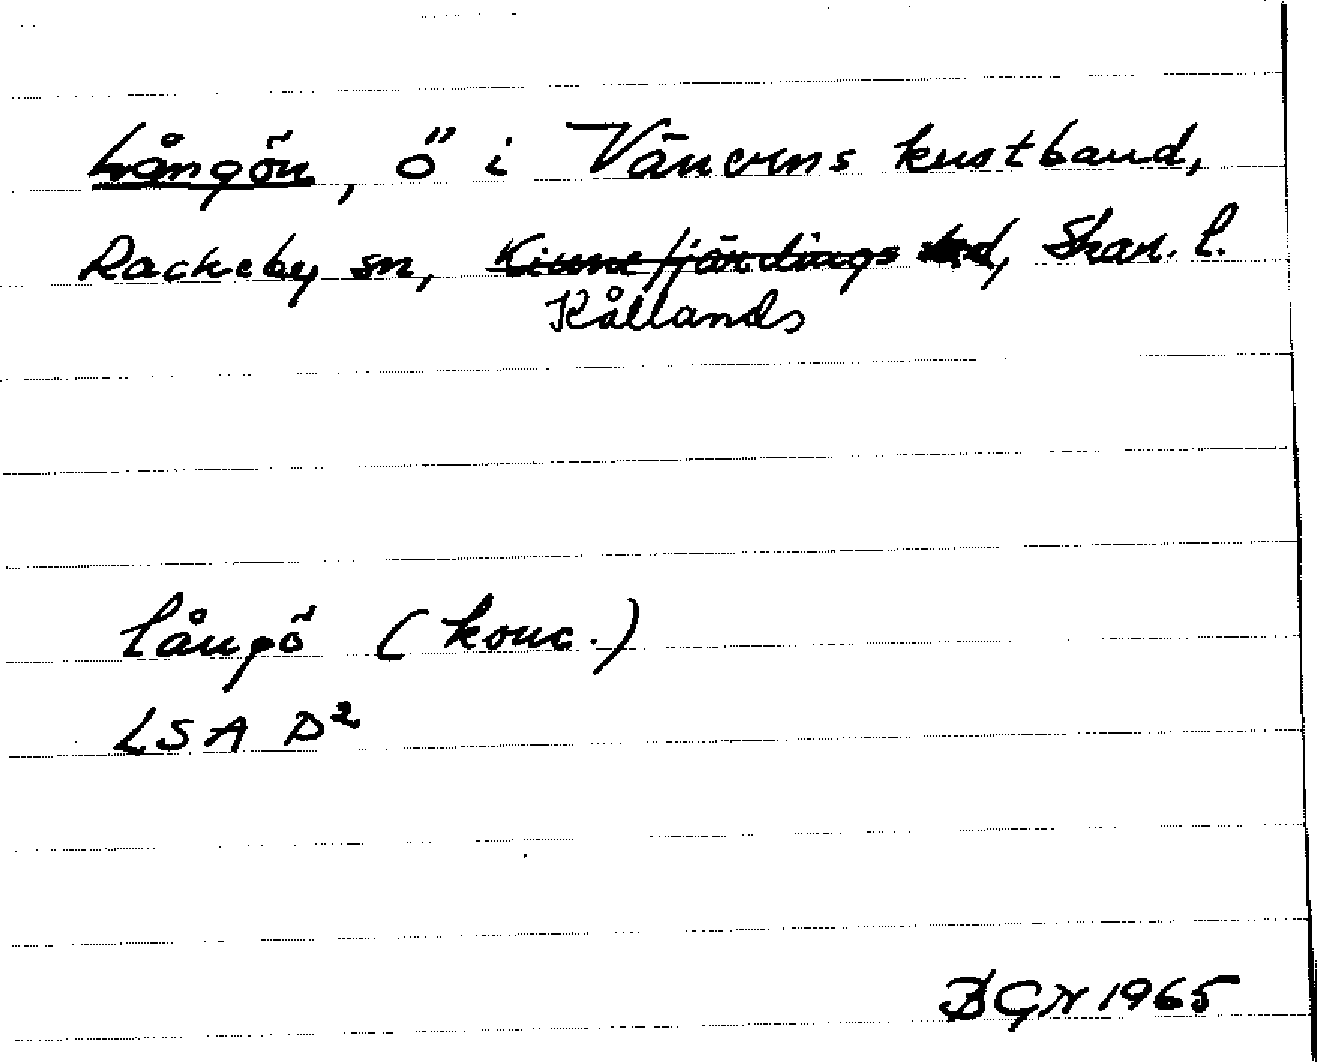 Långön, ö i Vänerns kustband,
Rackeby sn, Kinnefjärdings hd, Skar. l.
Kållands
Långö (konc.)
LSA P²
BGN 1965